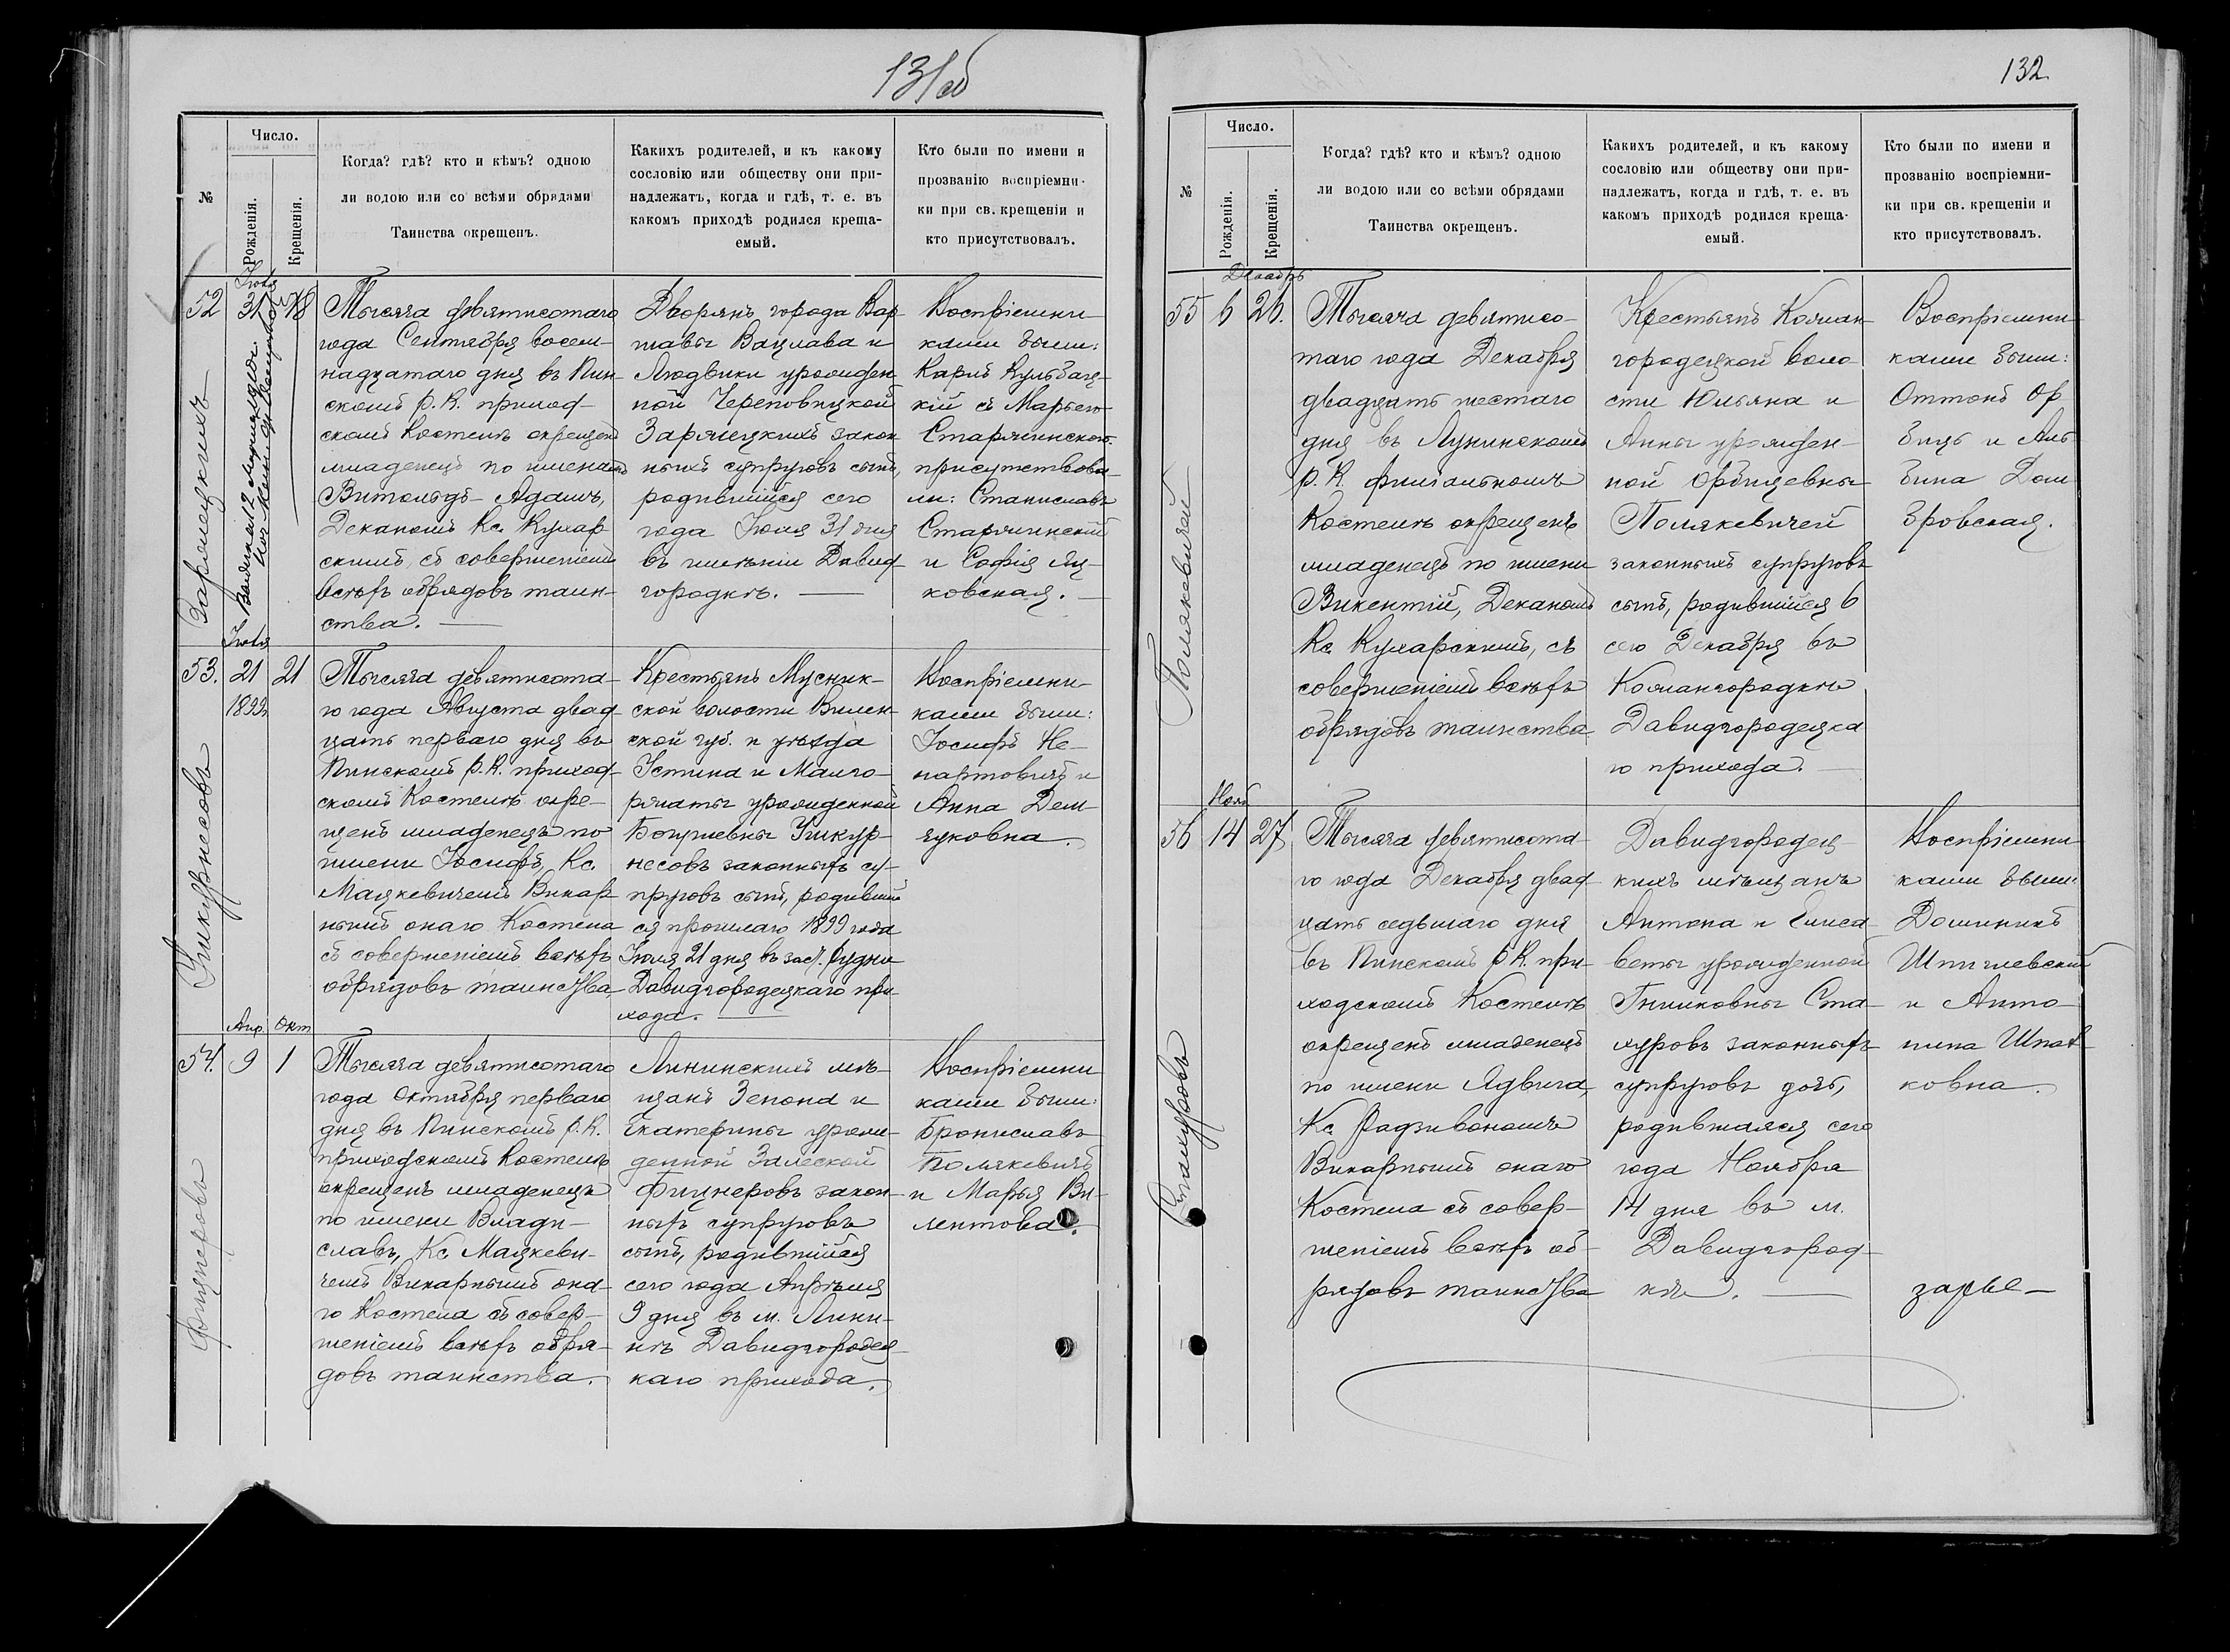 131об
№
Число.
Рожденія.
Крещенія.
Когда? гдѣ? кто и кѣмъ? одною
ли водою или со всѣми обрядами
Таинства окрещенъ.
Какихъ родителей, и къ какому
сословію или обществу они при-
надлежатъ, когда и гдѣ, т. е. въ
какомъ приходѣ родился креща-
емый.
Кто были по имени и
прозванію воспріемни-
ки при св. крещеніи и
кто присутствовалъ.
Заржецкихъ
52
Іюля
31
18
Тысяча девятисотаго
года Сентября восем-
надцатаго дня въ Пин-
скомъ Р. К. приход-
скомъ Костелѣ окрещенъ
младенецъ по именамъ
Витольдъ-Адамъ,
Деканомъ Кс. Кухар-
скимъ, съ совершеніемъ
всѣхъ обрядовъ таин-
ства.
Дворянъ города Вар-
шавы Вацлава и
Людвики урожден-
ной Череповицкой
Заржецкихъ закон-
ныхъ супруговъ сынъ,
родившійся сего
года Іюля 31 дня
въ имѣніи Давид-
городкѣ.
Воспріемни-
ками были:
Карлъ Кульбац-
кій съ Марьею
Старжинскою.
присутствова-
ли: Станиславъ
Старжинскій
и Софія Лу-
ковская.
Ушкурнесовъ
53.
Іюля
21
1899
21
Тысяча девятисота-
го года Августа двад-
цать перваго дня въ
Пинскомъ Р. К. приход-
скомъ Костелѣ окре-
щенъ младенецъ по
имени Іосифъ, Кс.
Мацкевичемъ Викар-
нымъ онаго Костела
съ совершеніемъ всѣхъ
обрядовъ таинства
Крестьянъ Мусник-
ской волости Вилен-
ской губ. и уѣзда
Устина и Малго-
ржаты урожденной
Богушевны Ушкур-
несовъ законныхъ су-
пруговъ сынъ, родивший-
ся прошлаго 1899 года
Іюля 21 дня въ заст. Рудни
Давидгородецкаго при-
хода.
Воспріемни-
ками были:
Іосифъ Не-
партовичъ и
Анна Дем-
чуковна.
Фицнеровъ
54.
Апр.
9
Окт
1
Тысяча девятисотаго
года Октября перваго
дня въ Пинскомъ Р. К.
приходскомъ Костелѣ
окрещенъ младенецъ
по имени Влади-
славъ, Кс. Мацкеви-
чемъ Викарнымъ она-
го Костела съ совер-
шеніемъ всѣхъ обря-
довъ таинства.
Лининскихъ мѣ-
щанъ Зенона и
Екатерины урож-
денной Залеской
Фицнеровъ закон-
ныхъ супруговъ
сынъ, родившійся
сего года Апрѣля
9 дня въ м. Лини-
нѣ Давидгородец-
каго прихода.
Воспріемни-
ками были:
Брониславъ
Полякевичъ
и Марья Ви-
лентова.
132
№
Число.
Рожденія.
Крещенія.
Когда? гдѣ? кто и кѣмъ? одною
ли водою или со всѣми обрядами
Таинства окрещенъ.
Какихъ родителей, и къ какому
сословію или обществу они при-
надлежатъ, когда и гдѣ, т. е. въ
какомъ приходѣ родился креща-
емый.
Кто были по имени и
прозванію воспріемни-
ки при св. крещеніи и
кто присутствовалъ.
Полякевичей
55
Декабрь
6
26.
Тысяча девятисо-
таго года Декабря
двадцать шестаго
дня въ Лунинскомъ
Р. К. филіальномъ
Костелѣ окрещенъ
младенецъ по имени
Викентій, Деканомъ
Кс. Кухарскимъ, съ
совершеніемъ всѣхъ
обрядовъ таинства
Крестьянъ Кожан-
городецкой воло-
сти Юльяна и
Анны урожден-
ной Орбицевны
Полякевичей
законныхъ супруговъ
сынъ, родившійся 6
сего Декабря въ
Кожангородкѣ
Давидгородецка-
го прихода.
Воспріемни-
ками были:
Оттонъ Ор-
бицъ и Аль-
бина Дом-
бровская.
Стахуровъ
56
Нояб
14
27
Тысяча девятисота-
го года Декабря двад-
цать седьмаго дня
въ Пинскомъ Р. К. при-
ходскомъ Костелѣ
окрещенъ младенецъ
по имени Ядвига,
Кс. Радзивономъ
Викарнымъ онаго
Костела съ совер-
шеніемъ всѣхъ об-
рядовъ таинства
Давидгородец-
кихъ мѣщанъ
Антона и Елиса-
веты урожденной
Гнишковны Ста-
хуровъ законныхъ
супруговъ дочь,
родившаяся сего
года Ноября
14 дня въ м.
Давидгород-
кѣ.
Воспріемни-
ками были:
Доминикъ
Шпилевскій
и Анто-
нина Шпа-
ковна.